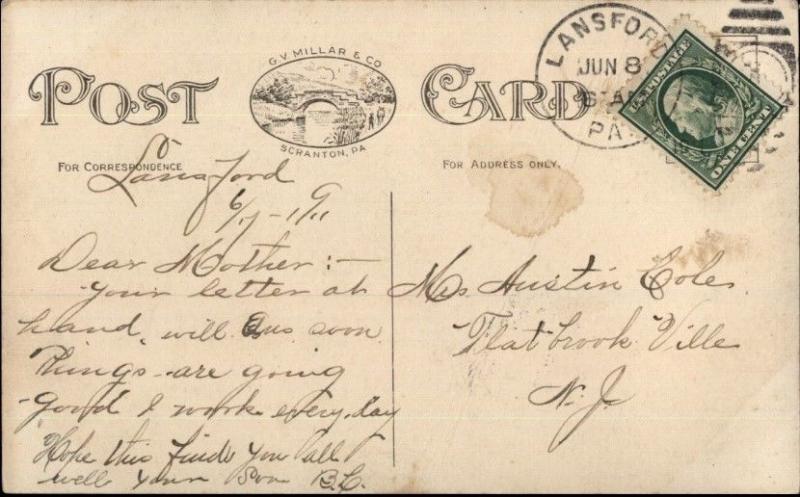 POST CARD
G.V. MILLAR & CO
SCRANTON, PA.
FOR CORRESPONDENCE
FOR ADDRESS ONLY.
LANSFORD
JUN 8
6 AM
PA.
U.S. POSTAGE
ONE CENT
Lansford
6/7-1911
Dear Mother:-
Your letter at
hand, will Ans soon
Things are going
good I work every day
Hope this finds you all
well your Son B.C.
Mrs Austin Cole
Flatbrook Ville
N.J.